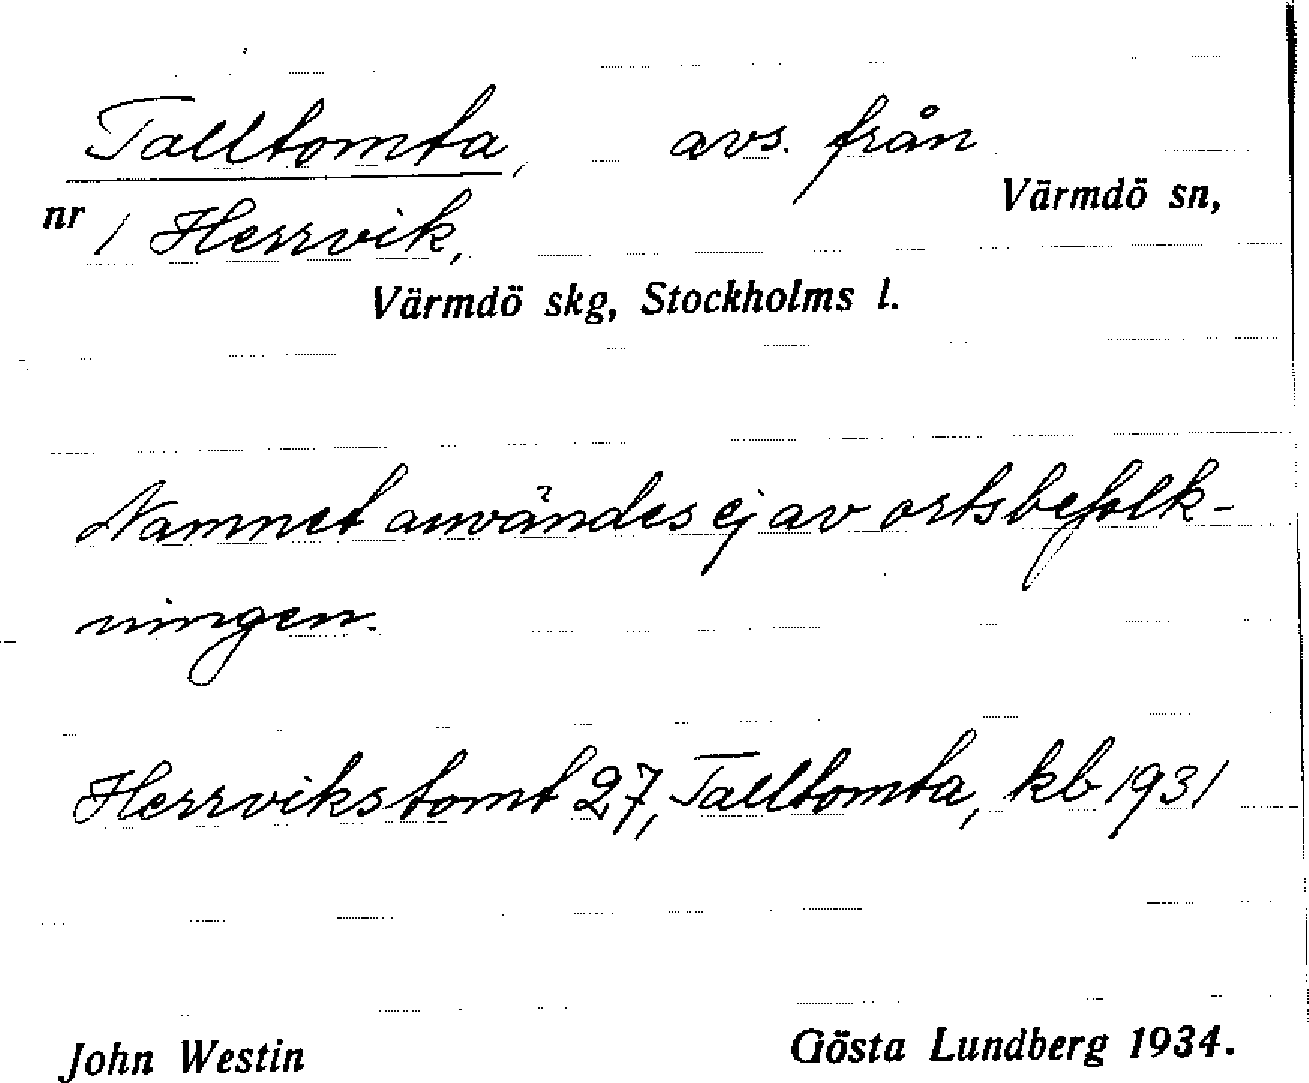 Talltomta, avs. från
Värmdö sn,
nr 1 Herrvik,
Värmdö skg, Stockholms l.
Namnet användes ej av ortsbefolk-
ningen.
Herrvikstomt 27, Talltomta, kb 1931
John Westin Gösta Lundberg 1934.